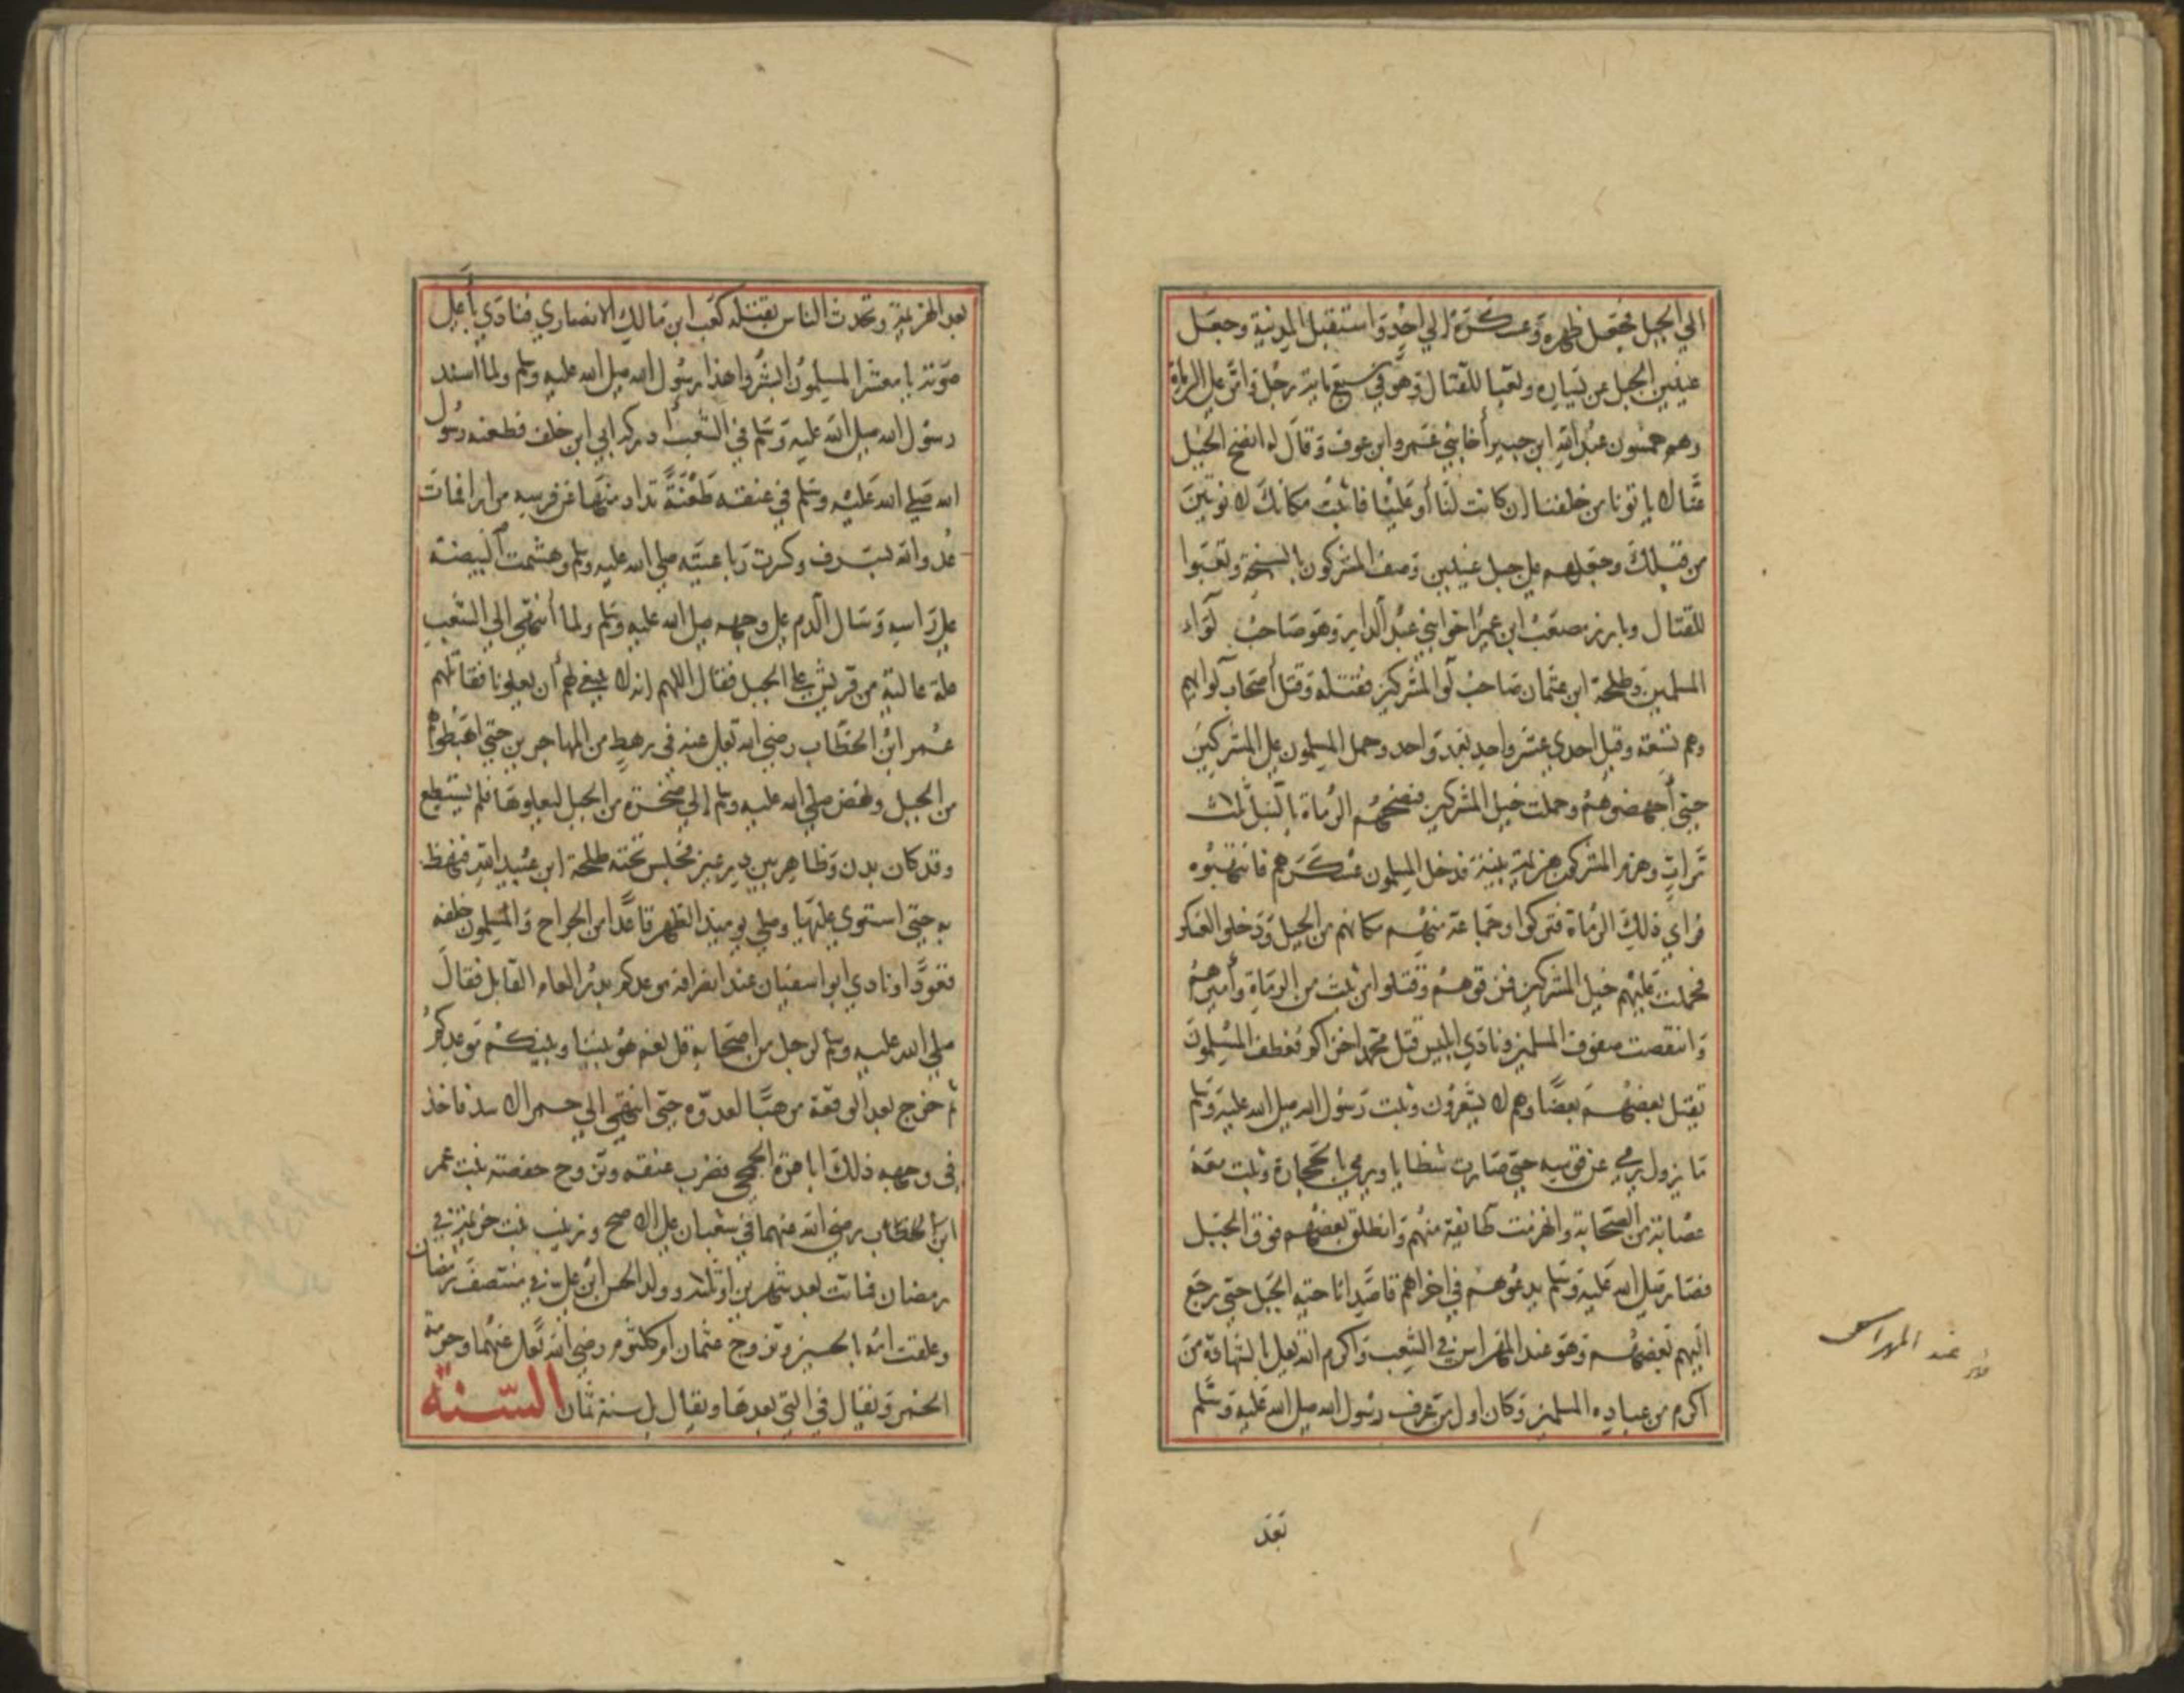 الي الجبل فجعل ظهره وعسكره الي احد واستقبل المدينة وجعل
عينين الجبل عن يساره وتعبا للقتال وهو في سبع ماية رجل وامر علي الرماة
وهم خمسون عبد الله ابن جبير أخا بني عمرو ابن عوف وقال له انضح الخيل
عنا لا ياتونا من خلفنا ان كانت لنا أو علينا فاثبت مكانك لا نوتين
من قبلك وجعلهم علي جبل عينين وصف المشركون بالسبخة وتعبوا
للقتال وبارز مصعب ابن عمير اخو ابني عبد الدار وهو صاحب لواء
المسلمين وطلحة ابن عثمان صاحب لوا المشركين فقتله وقتل أصحاب لوايهم
وهم تسعة وقيل احدي عشر واحد بعد واحد وحمل المسلمون علي المشركين
حتي أجهضوهم وحملت خيل المشركين فنضحهم الرماة بالنبل ثلاث
مرات وهزم المشركون هزيمة بينة فدخل المسلمون عسكرهم فانتهبوه
فراي ذلك الرماة فتركوا وجماعة منهم مكانهم من الجبل ودخلوا العسكر
فحملت عليهم خيل المشركين فمزقوهم وقتلوا من ثبت من الرماة وأميرهم
وانتقضت صفوف المسلمين ونادي ابليس قتل محمد اخراكم فعطف المسلمون
يقتل بعضهم بعضا وهم لا يشعرون وثبت رسول الله صلي الله عليه وسلم
ما يزول يرمي عن قوسه حتي صارت شظايا ويرمي بالحجارة وثبت معه
عصابة من الصحابة وانهزمت طايفة منهم وانطلق بعضهم فوق الجبل
فصار صلي الله عليه وسلم يدعوهم في اخراهم قاصدا ناحية الجبل حتي رجع
اليهم بعضهم وهو عند المهراس في الشعب واكرم الله تعلي بالشهادة من
اكرم من عباده المسلمين وكان اول من عرف رسول الله صلي الله عليه وسلم
عند المهراس
بعد
بعد الهزيمة وتحدث الناس بقتله كعب ابن مالك الانصاري فنادي بأعلي
صوته يا معشر المسلمون ابشروا هذا رسول الله صلي الله عليه وسلم ولما اسند
رسول الله صلي الله عليه وسلم في الشعب أدركه ابي ابن خلف فطعنه رسول
الله صلي الله عليه وسلم في عنقه طعنة تداد منها عن فرسه مرارا فمات
عدو الله بسرف وكسرت رباعيته صلي الله عليه وسلم وهشمت البيضة
علي راسه وسال الدم علي وجهه صلي الله عليه وسلم ولما أنتهي الي الشعب
علة عالية من قريش علي الجبل فقال اللهم انه لا ينبغي لهم أن يعلونا فقاتلهم
عمر ابن الخطاب رضي الله تعلي عنه في رهط من المهاجرين حتي اهبطوهم
من الجبل ونهض صلي الله عليه وسلم إلي صخرة من الجبل ليعلوها فلم يستطع
وقد كان بدن وظاهر بين درعين فجلس تحته طلحة ابن عبيد الله فنهظ
به حتي استوي عليها وصلي يوميذ الظهر قاعدا من الجراح والمسلمون خلفه
قعودا ونادي ابو اسفيان عند انصرافه موعدكم بدر العام القابل فقال
صلي الله عليه وسلم لرجل من اصحابه قل نعم هو بيننا وبينكم موعدكم
ثم خرج بعد الوقعة مرهبا لعدوه حتي انتهي الي حمرا الاسد فاخذ
في وجهه ذلك ابا عزة الجمحي فضرب عنقه وتزوج حفصة بنت عمر
ابن الخطاب رضي الله عنهما في شعبان علي الاصح وزينب بنت خزيمة في
رمضان فماتت بعد شهرين او ثلاثة وولد الحسن ابن علي في منتصف رمضان
وعلقت امه بالحسين وتزوج عثمان ام كلثوم رضي الله تعلي عنهما وحرمة
الخمر ويقال في التي بعدها ويقال بل سنة ثمان السنة